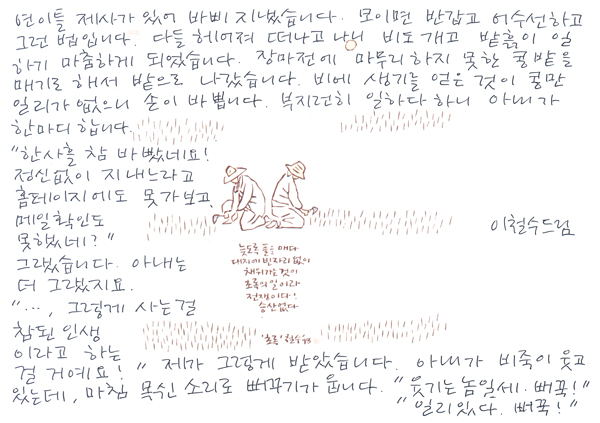 연이틀 제사가 있어 바삐 지냈습니다. 모이면 반갑고 어수선하고
그런 법입니다. 다들 헤어져 떠나고 나니 비도 개고 밭흙이 일
하기 마춤하게 되었습니다. 장마전에 마무리하지 못한 콩밭을
매기로 해서 밭으로 나갔습니다. 비에 생기를 얻은 것이 콩만
일리가 없으니 손이 바쁩니다. 부지런히 일하다 하니 아내가
한마디 합니다.
"한사흘 참 바빴네요!
정신없이 지내느라고
홈페이지에도 못가보고
메일확인도
못했네?"
그랬습니다. 아내는
더 그랬지요.
"…, 그렇게 사는걸
참된 인생
이라고 하는
걸 거예요!" 제가 그렇게 받았습니다. 아내가 비죽이 웃고
있는데, 마침 목신 소리로 뻐꾸기가 웁니다. "웃기는 놈일세. 뻐꾹!"
"일리있다. 뻐꾹!"
이철수드림
늦도록 풀을 매다
대지에 빈자리 없이
채워가는 것이
초록의 일이라
전쟁이다!
승산없다
'초록'